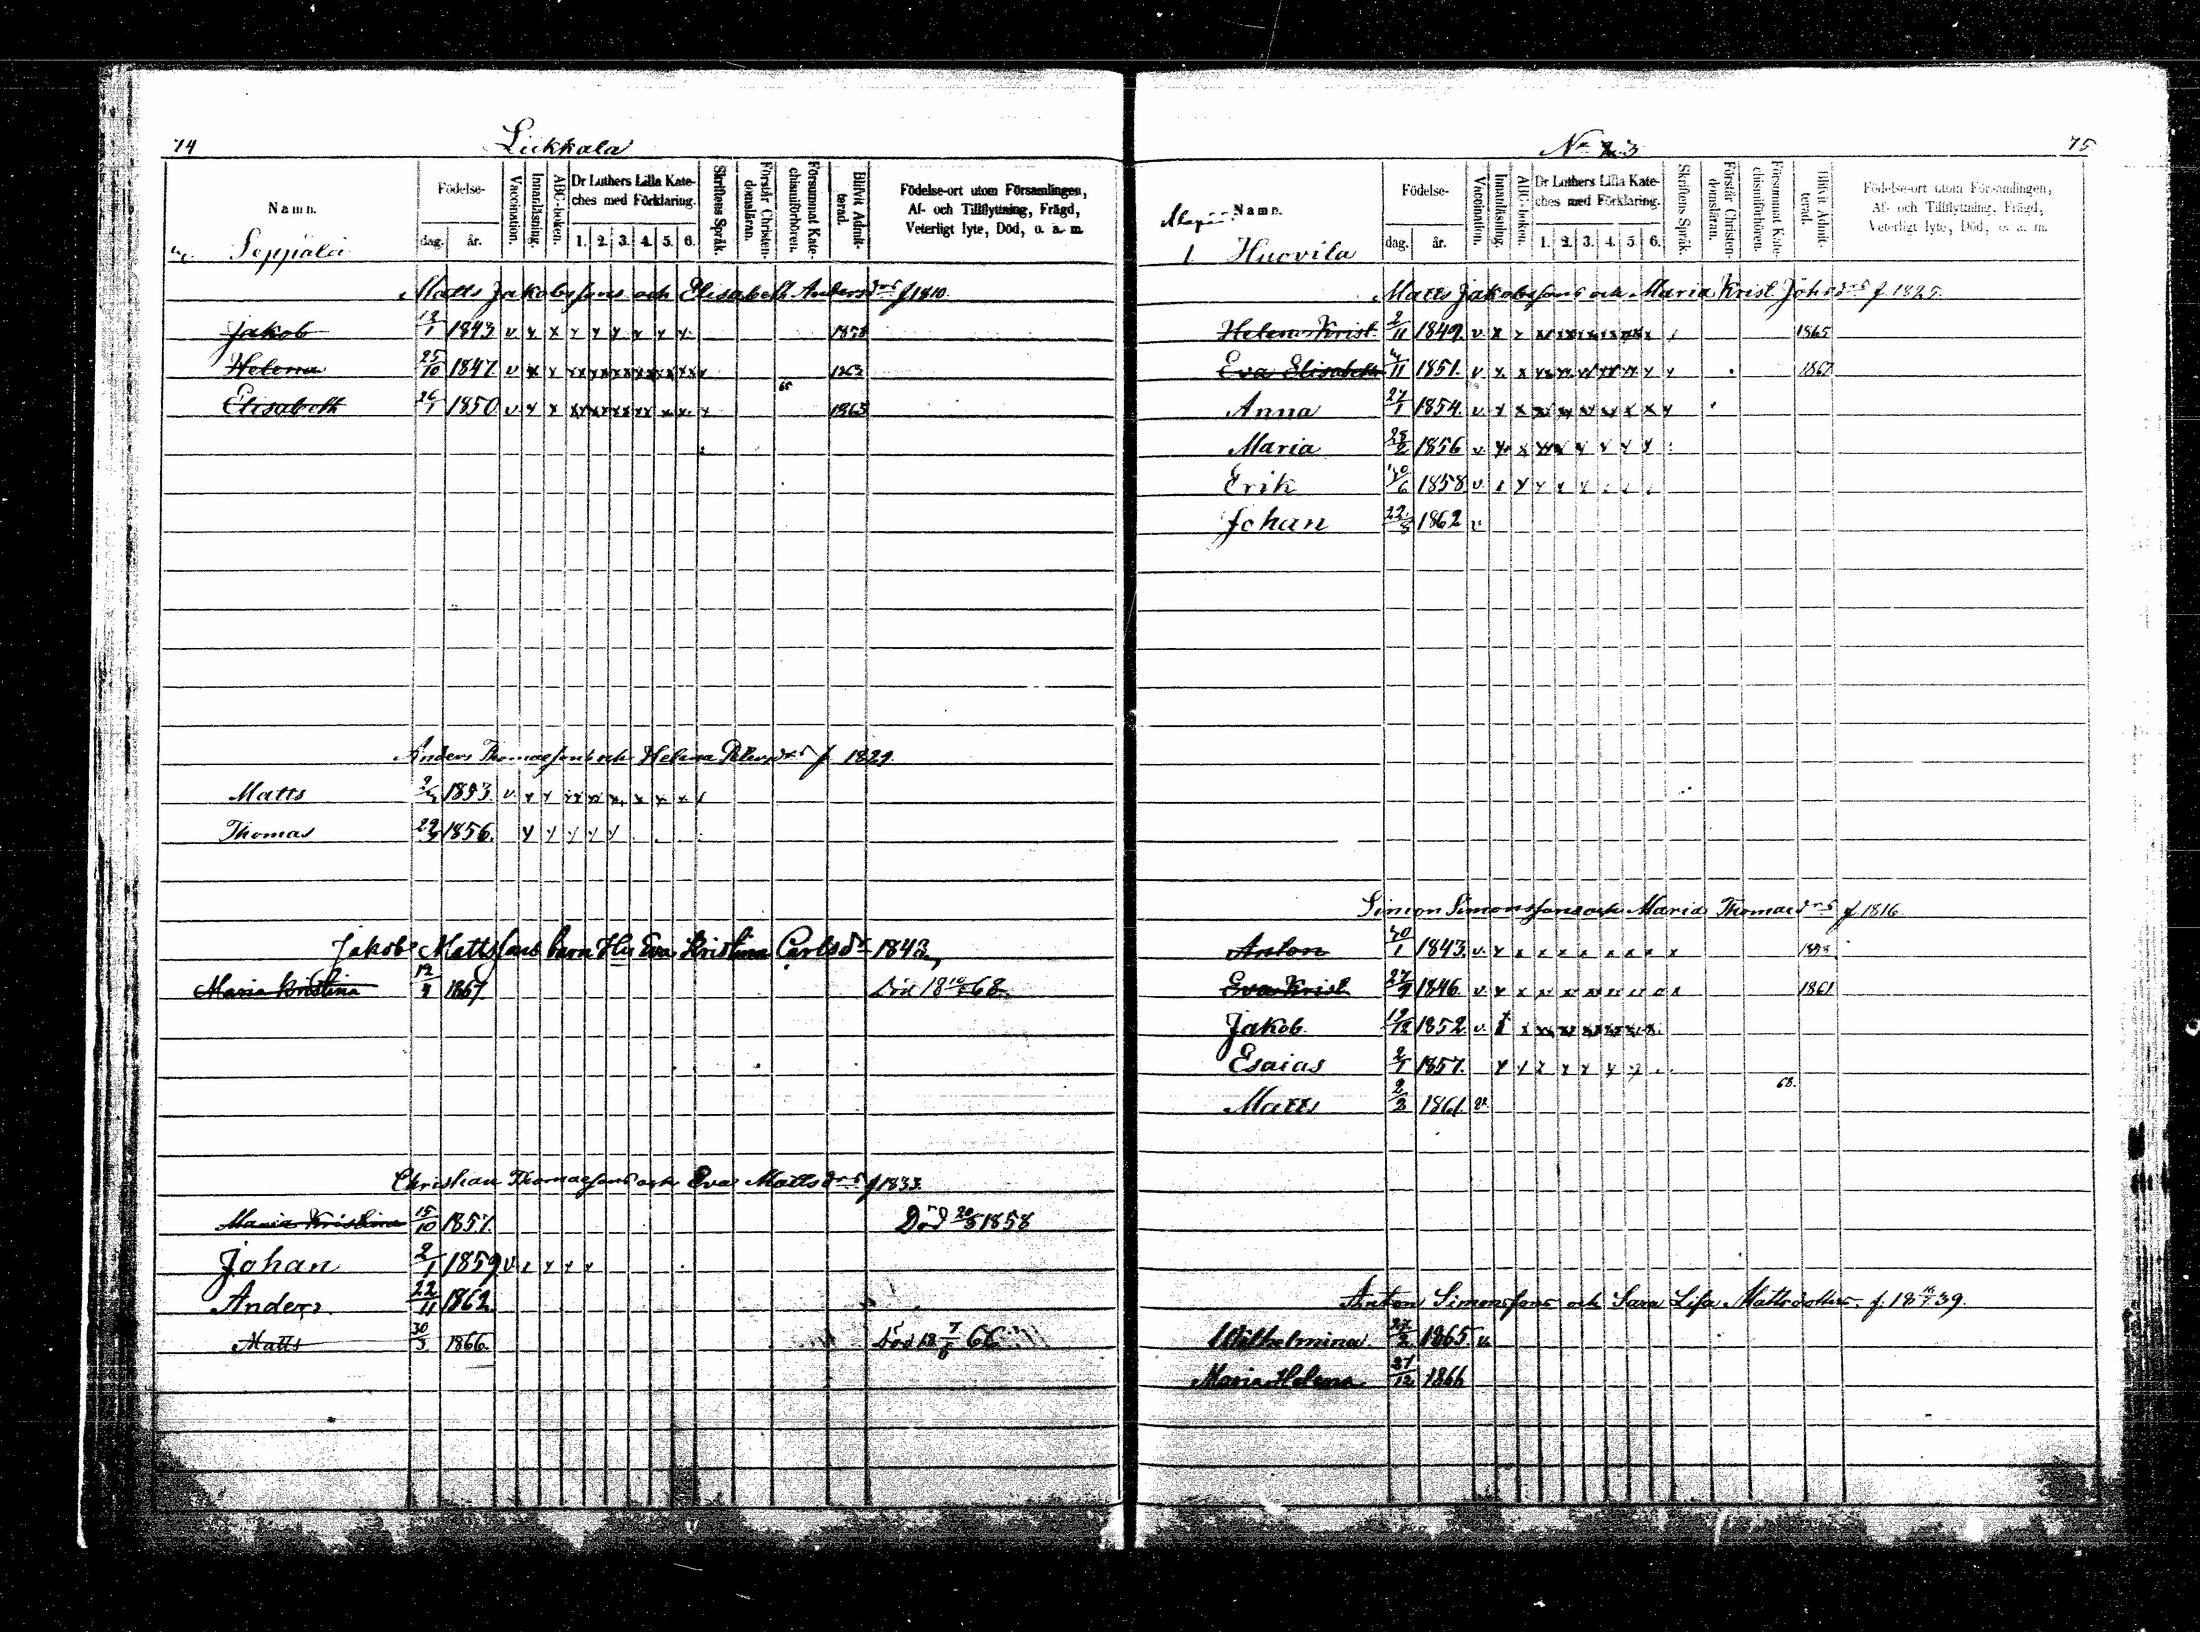 74
Liikkala
Namn.
Födelse-
dag.
år.
Vaccination.
Innanläsning.
ABC-boken.
Dr Luthers Lilla Kate-
ches med Förklaring.
1. 2. 3. 4. 5. 6.
Skriftens Språk.
Förstår Christen-
domsläran.
Försummat Kate-
chismiförhören.
Blifvit Admit-
terad.
Födelse-ort utom Församlingen,
Af- och Tillflyttning, Frägd,
Veterligt lyte, Död, o. a. m.
Seppälä
Matts Jakobssons och Elisabeth Andersdrs f 1810.
Jakob 13/1 1843 v x x x x x x x x 1858
Helena 25/10 1847 v x x xx xx xx xx xx xx x 1863
65
Elisabeth 26/1 1850 v x x xx xx xx xx xx x x 1865
Anders Thomassons och Helena Petersdrs f 1829
Matts 1853. v x x xx xx x x x x
Thomas 1856. x x x x x
Jakob Mattssons barn Hu Eva Kristina Carlsdr 1843,
Maria Kristina 1867. Död 68.
Christian Thomassons och Eva Mattsdrs f 1833.
Maria Kristina 15/10 1857. Död 20/5 1858
Johan 2/1 1859 v x x x x
Anders 22/11 1862
Matts 30/3 1866. Död 18 7/6 66
No 3
75
Namn.
Födelse-
dag.
år.
Vaccination.
Innanläsning.
ABC-boken.
Dr Luthers Lilla Kate-
ches med Förklaring.
1. 2. 3. 4. 5. 6.
Skriftens Språk.
Förstår Christen-
domsläran.
Försummat Kate-
chismiförhören.
Blifvit Admit-
terad.
Födelse-ort utom Församlingen,
Af- och Tillflyttning, Frägd,
Veterligt lyte, Död, o. a. m.
1 Huovila
Matts Jakobssons och Maria Krist. Johsdrs f. 1825.
Helena Krist. 2/11 1849. v x x xx xx xx xx xx x 1865
Eva Elisabeth 1851. v x x xx xx xx xx xx x x 1867
Anna 27/1 1854. v x x xx xx xx xx x x x
Maria 1856 v x x xx xx x x x x
Erik 1858 v x x x x x
Johan 22/8 1862 v
Simon Simonssons och Maria Thomasdrs f 1816
Anton 30/1 1843. v x x x x x x x x 1858
Eva Krist 27/9 1846. v x x xx x xx x x x x 1861
Jakob 1852. v x x xx xx xx xx xx x
Esaias 1857. x x x x x x x
68.
Matts 2/3 1861. v
Anton Simonssons och Sara Lisa Mattsdotters. f. 18 39.
Wilhelmina 27/2 1865. v.
Maria Helena. 1866